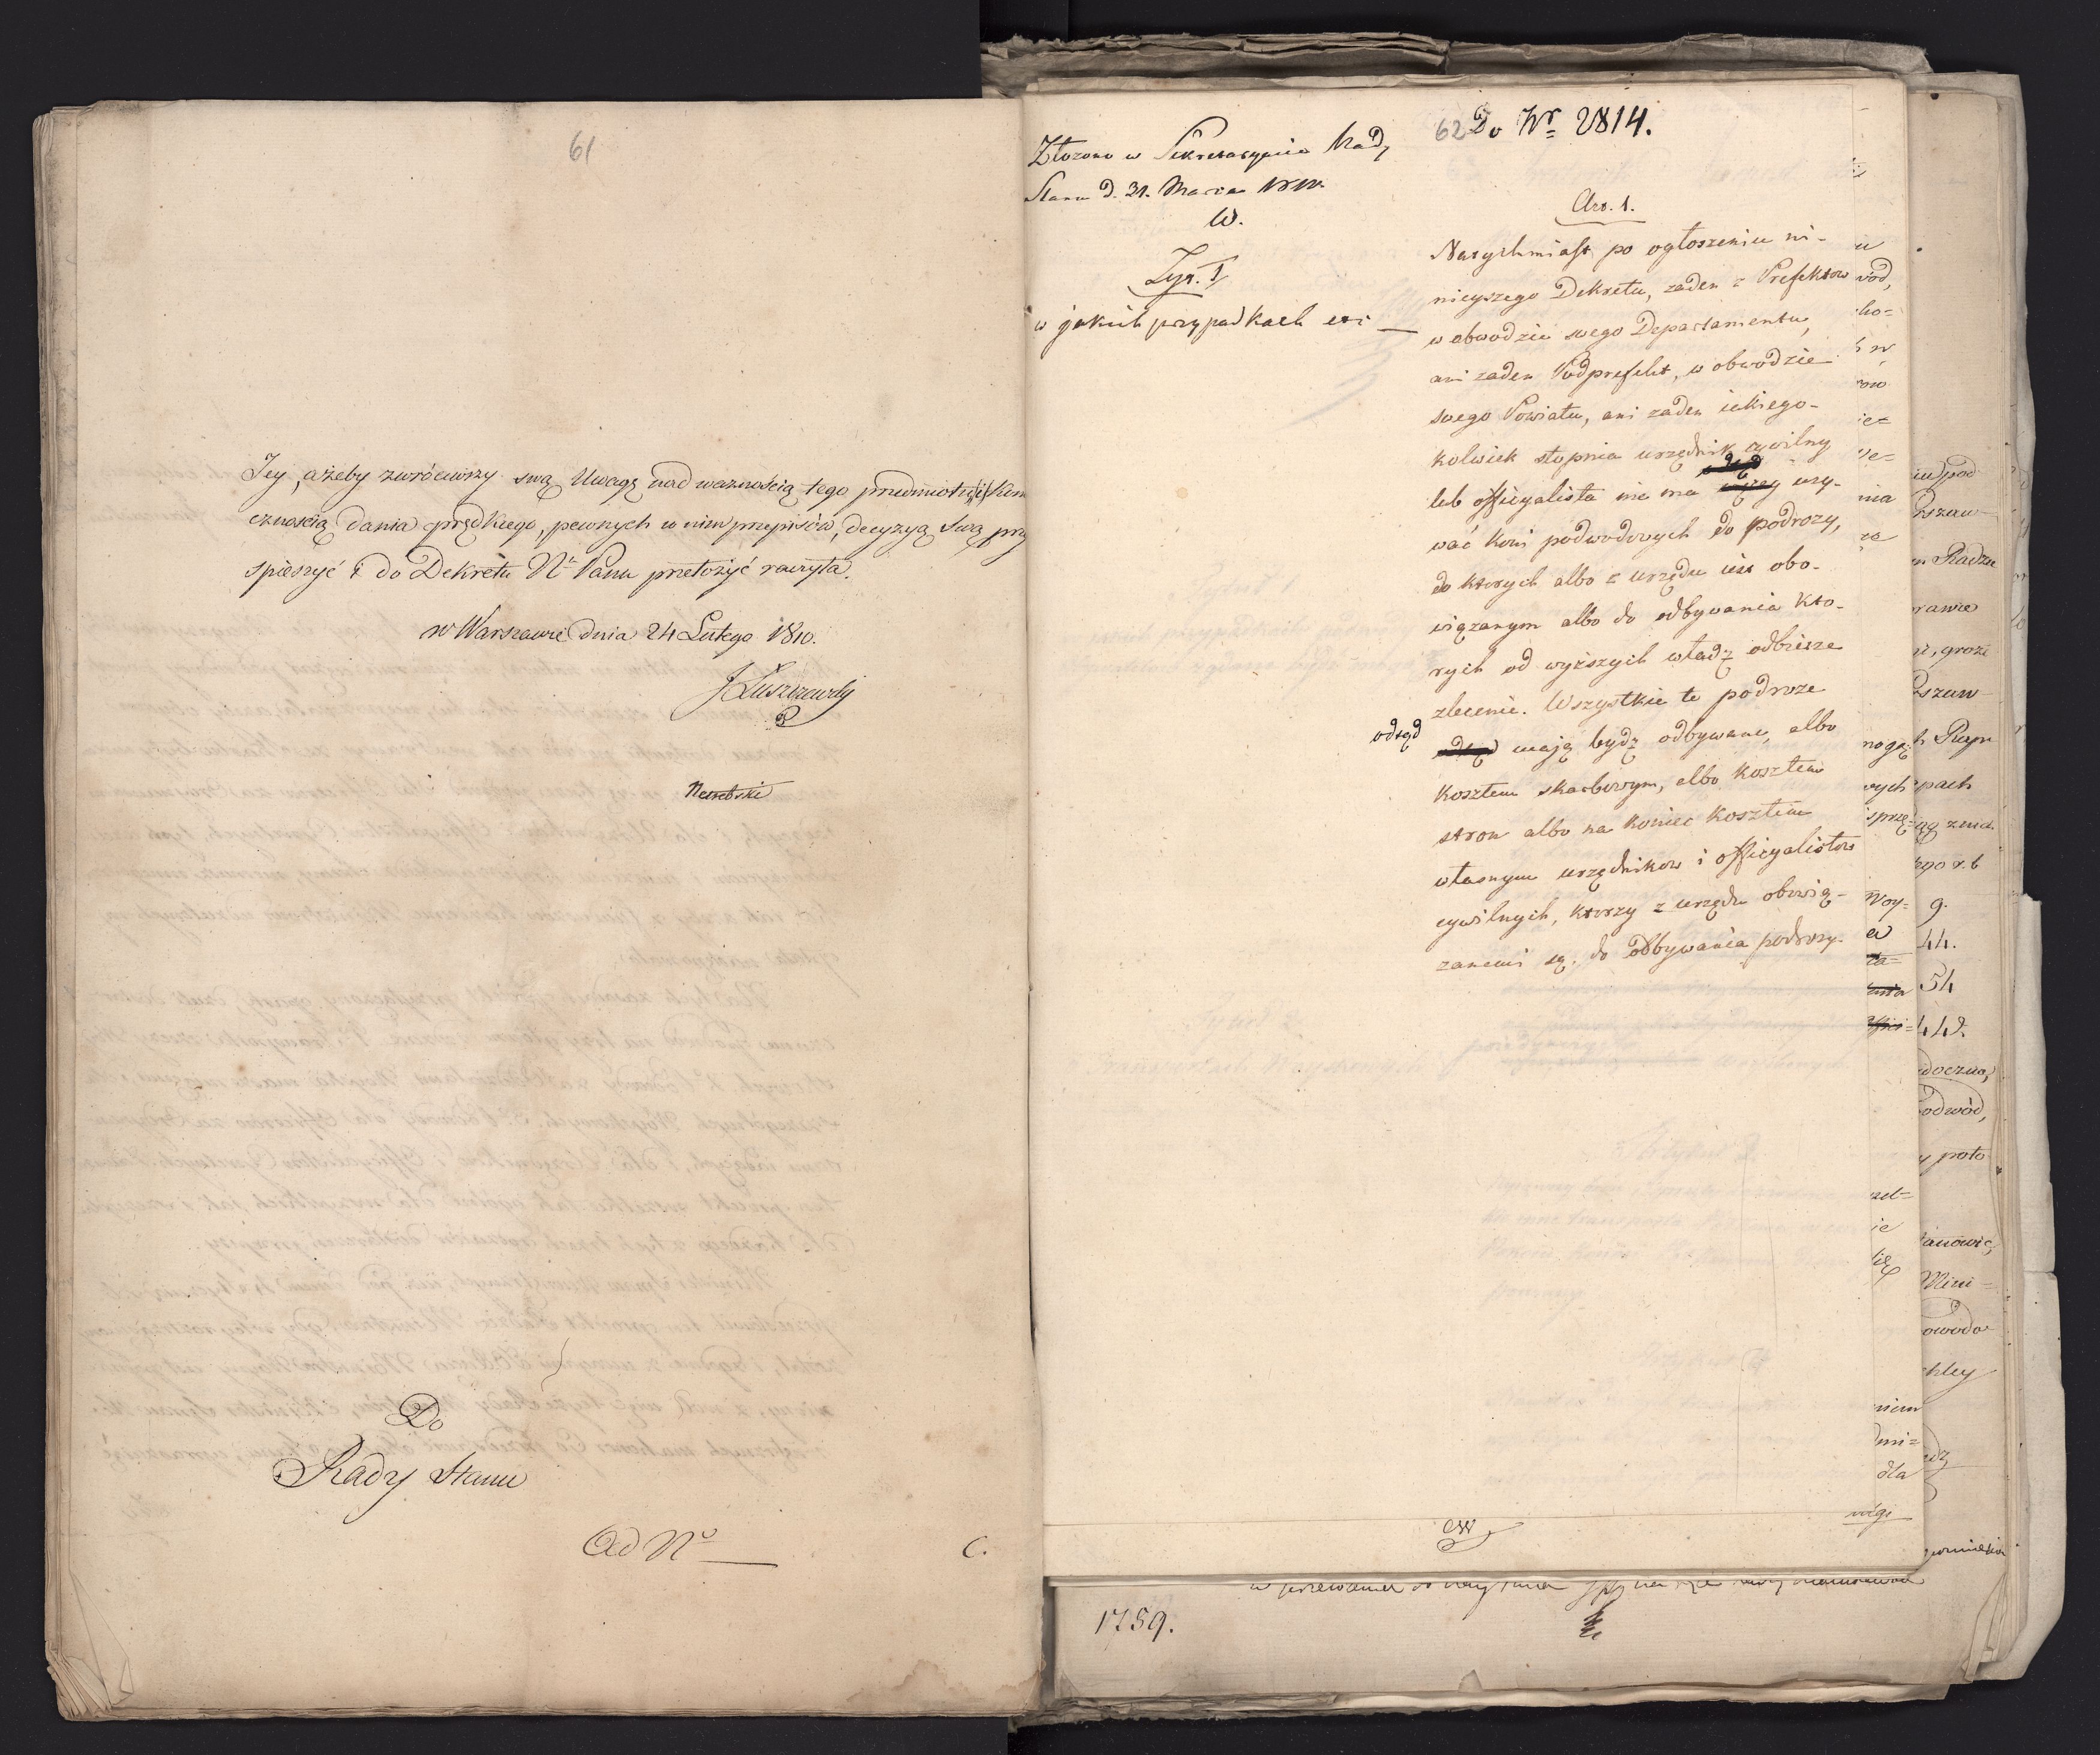 61
Jey, ażeby zwróciwszy swą Uwagę nad ważnością tego przedmiotu,
cznością dania prędkiego, pewnych w nim przepisów, decyzyą swą przy
spieszyć i do Dekretu Nº Panu przełożyć raczyła.
w Warszawie dnia 24 Lutego 1810.
JŁuszczewski
Do
Rady Stanu
Ad Nº
C.
62 Do Nr 2814.
Złożono w Sekretaryacie Rady
Stanu d. 31. Marca 1810.
W.
Tyt. I
w jakich przypadkach etc
Art. 1.
Natychmiast po ogłoszeniu ni-
nieyszego Dekretu, żaden z Prefektow
w obwodzie swego Departamentu,
ani żaden Podprefekt, w obwodzie
swego Powiatu, ani żaden iakiego-
kolwiek stopnia urzędnik cywilny
lub officyalista nie ma uży-
wać koni podwodowych do podroży,
do ktorych albo z urzędu iest obo-
wiązanym albo do odbywania kto-
rych od wyższych władz odbierze
zlecenie. Wszystkie te podroże
odtąd maią bydź odbywane, albo
kosztem skarbowym, albo kosztem
stron albo na koniec kosztem
własnym urzędnikow i officyalistow
cywilnych, ktorzy z urzędu obowią-
zanemi są do odbywania podroży.
1759.